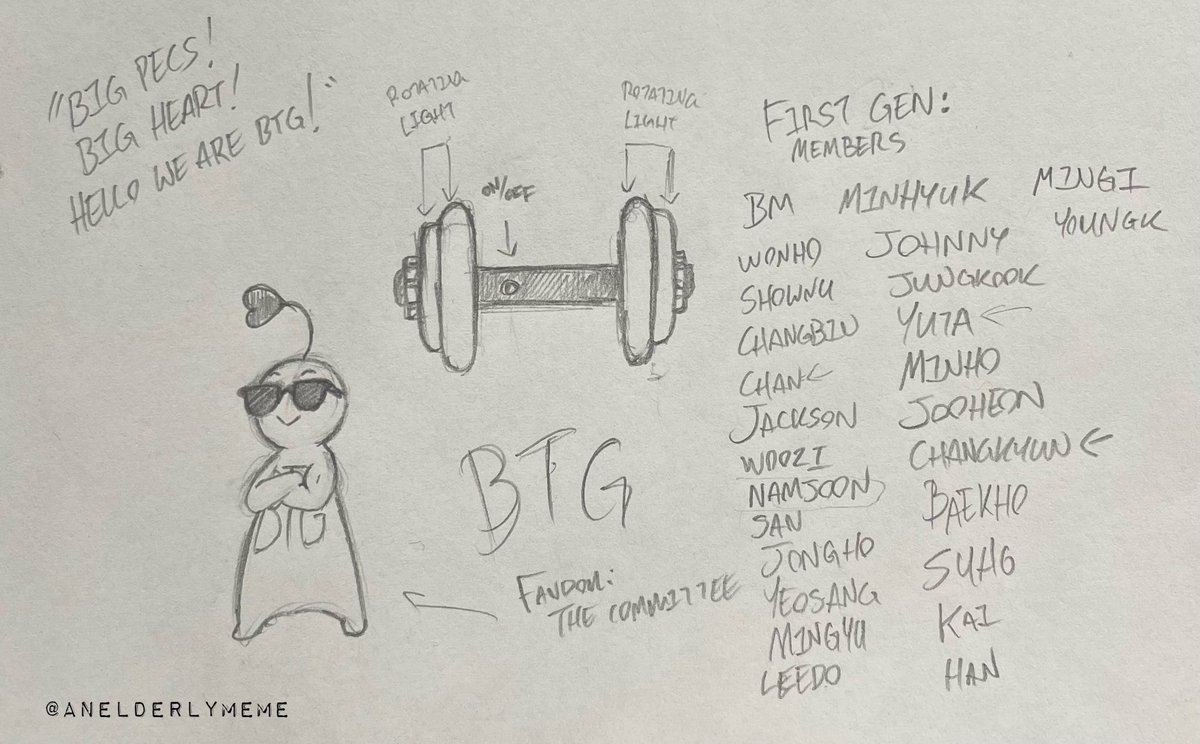 "BIG PECS!
BIG HEART!
HELLO WE ARE BTG!"
ROTATING
LIGHT
ON/OFF
ROTATING
LIGHT
BTG
BTG
FANDOM:
THE COMMITTEE
FIRST GEN:
MEMBERS
BM MINHYUK MINGI
WONHO JOHNNY YOUNGK
SHOWNU JUNGKOOK
CHANGBIN YUTA
CHAN MINHO
JACKSON JOOHEON
WOOZI CHANGKYUN
NAMJOON BAEKHO
SAN
JONGHO SUHO
YEOSANG
MINGYU KAI
LEEDO HAN
@ANELDERLYMEME